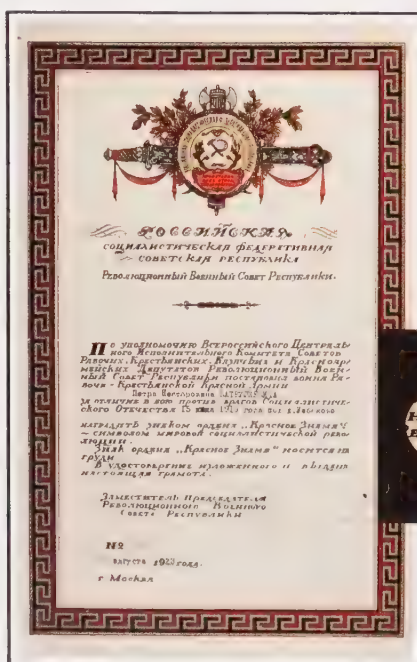 РОССИЙСКАЯ
СОЦИАЛИСТИЧЕСКАЯ ФЕДЕРАТИВНАЯ
СОВЕТСКАЯ РЕСПУБЛИКА
Революционный Военный Совет Республики.
По уполномочию Всероссийского Централь-
ного Исполнительного Комитета Советов
Рабочих, Крестьянских, Казачьих и Красноар-
мейских Депутатов Революционный Воен-
ный Совет Республики постановил воина Ра-
боче-Крестьянской Красной Армии
Петра Нестеровича
за отличие в бою против врагов Социалистиче-
ского Отечества 15 1919 года
наградить знаком ордена „Красное Знамя“
~ символом мировой социалистической рево-
люции.
Знак ордена „Красное Знамя“ носится на
груди
В удостоверение изложенного и выдана
настоящая грамота.
Заместитель Председателя
Революционного Военного
Совета Республики
№
августа 1922 года.
г Москва